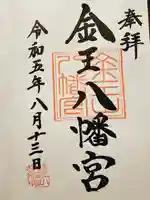 奉拝
金王八幡宮
令和五年八月十三日